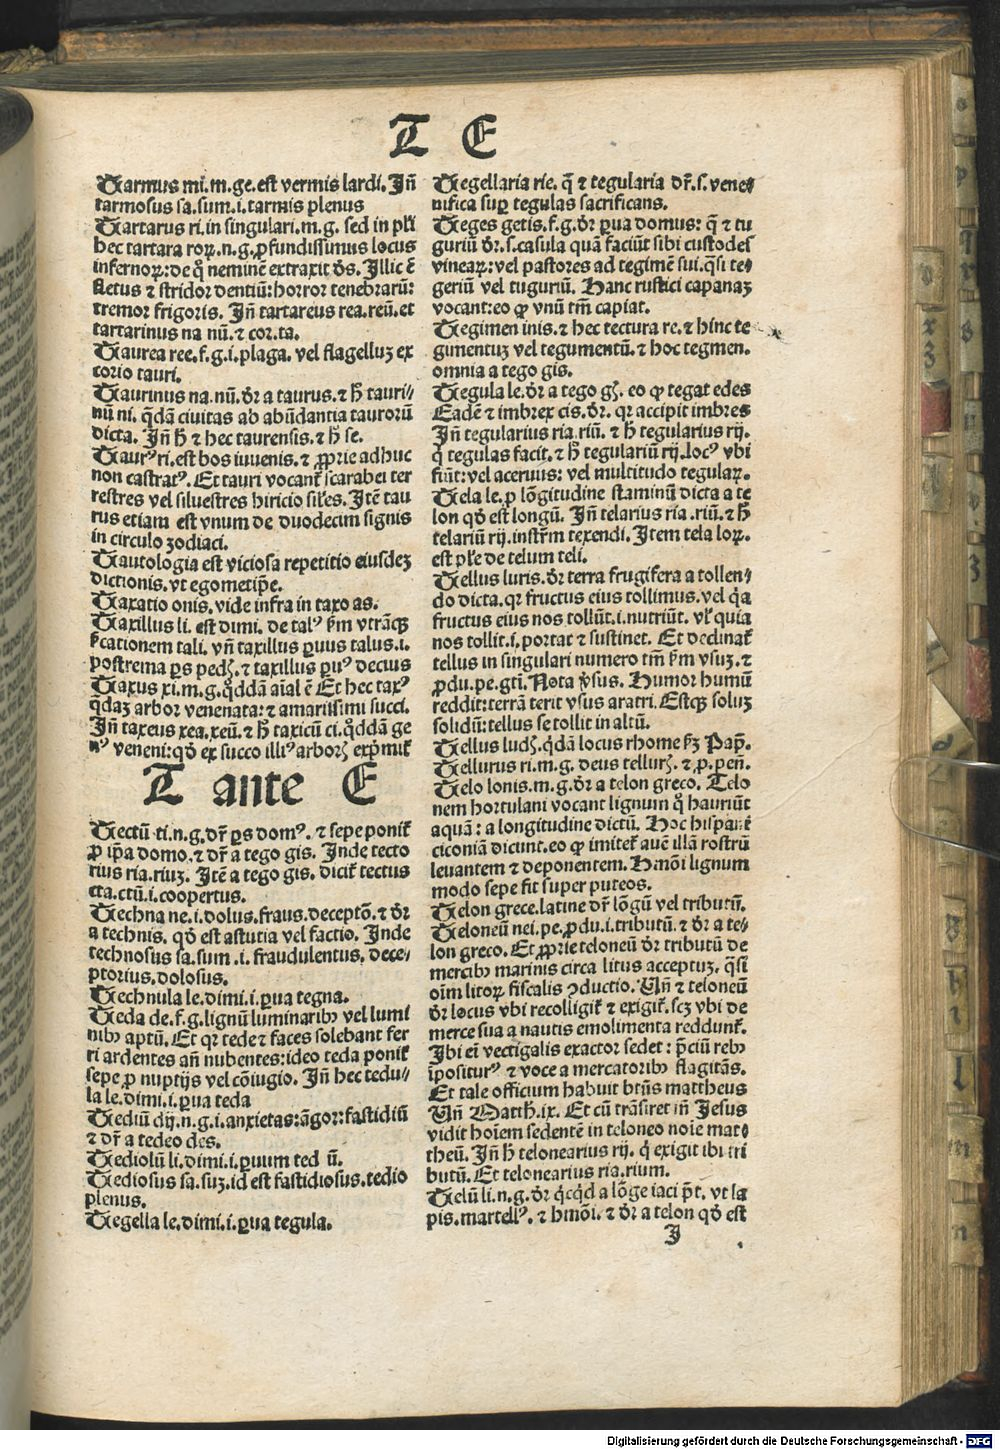 T E
Tarmus mi. m. ge. est vermis lardi. Jñ
tarmosus sa. sum. i. tarmis plenus
Tartarus ri. in singulari. m. g. sed in pl̃i
hec tartara roꝝ. n. g. ꝓfundissimus locus
infernoꝝ: de q̊ neminē extraxit dñs. Illic ē
fletus ⁊ stridor dentiū: horror tenebrarū:
tremor frigoris. Jñ tartareus rea. reū. et
tartarinus na nū. ⁊ cor. ta.
Taurea ree. f. g. i. plaga. vel flagelluꝫ ex
corio tauri.
Taurinus na. nū. dr̃ a taurus. ⁊ h̃ tauri⸗
nū ni. q̄dā ciuitas ab abūdantia tauroꝝ
dicta. Jñ h̃ ⁊ hec taurensis. ⁊ h̃ se.
Taurꝰ ri. est bos iuuenis. ⁊ ꝓprie adhuc
non castratꝰ. Et tauri vocant̃ scarabei ter
restres vel siluestres hiricio sil̃es. Itē tau
rus etiam est vnum de duodecim signis
in circulo zodiaci.
Tautologia est viciosa repetitio eiusdeꝫ
dictionis. vt egometip̃e.
Taxatio onis. vide infra in taxo as.
Taxillus li. est dimi. de talꝰ ẜm vtrāqꝫ
ẜcationem tali. vñ taxillus ꝑuus talus. i.
postrema ꝑs pedꝭ. ⁊ taxillus ꝑuꝰ decius
Taxus xi. m. g. q̊ddā aīal ē Et hec taxꝰ
q̄daꝫ arbor venenata: ⁊ amarissimi succi.
Jñ taxeus xea. xeū. ⁊ h̃ taxicū ci. q̊ddā ge
nꝰ veneni: qđ ex succo illiꝰ arborꝭ exp̃mit̃
T ante E
Tectū ti. n. g. dr̃ ꝑs domꝰ. ⁊ sepe ponit̃
ꝓ ip̃a domo. ⁊ dr̃ a tego gis. Inde tecto
rius ria. riuꝫ. Itē a tego gis. dicit̃ tectus
cta. ctū. i. coopertus.
Techna ne. i. dolus. fraus. deceptō. ⁊ dr̃
a technis. qđ est astutia vel factio. Inde
technosus sa. sum. i. fraudulentus. dece⸗
ptorius. dolosus.
Technula le. dimi. i. ꝑua tegna.
Teda de. f. g. lignū luminaribꝰ vel lumi
nibꝰ aptū. Et qꝛ tede ⁊ faces solebant fer
ri ardentes añ nubentes: ideo teda ponit̃
sepe ꝓ nuptijs vel cōiugio. Jñ hec tedu⸗
la le. dimi. i. ꝑua teda
Tediū dij. n. g. i. anxietas: āgor: fastidiū
⁊ dr̃ a tedeo des.
Tediolū li. dimi. i. ꝑuum ted ū.
Tediosus sa. suꝫ. id est fastidiosus. tedio
plenus.
Tegella le. dimi. i. ꝑua tegula.
Tegellaria rie. q̄ ⁊ tegularia dr̃. s. vene⸗
nifica suꝑ tegulas sacrificans.
Teges getis. f. g. dr̃ ꝑua domus: q̄ ⁊ tu
guriū dr̃. s. casula quā faciūt sibi custodes
vineaꝝ: vel pastores ad tegimē sui. q̄si te⸗
geriū vel tuguriū. Hanc rustici capanaꝫ
vocant: eo ꝙ vnū tm̃ capiat.
Tegimen inis. ⁊ hec tectura re. ⁊ hinc te
gimentuꝫ vel tegumentū. ⁊ hoc tegmen.
omnia a tego gis.
Tegula le. dr̃ a tego gꝭ. eo ꝙ tegat edes
Eadē ⁊ imbrex cis. dr̃. qꝛ accipit imbres
Jñ tegularius ria. riū. ⁊ h̃ tegularius rij.
q̇ tegulas facit. ⁊ h̃ tegulariū rij. locꝰ vbi
fiūt: vel aceruus: vel multitudo tegulaꝝ.
Tela le. ꝑ lōgitudine staminū dicta a te
lon qđ est longū. Jñ telarius ria. riū. ⁊ h̃
telariū rij. instr̃m texendi. Item tela loꝝ.
est pl̃e de telum teli.
Tellus luris. dr̃ terra frugifera a tollen⸗
do dicta. qꝛ fructus eius tollimus. vel q̄a
fructus eius nos tollūt. i. nutriūt. vl̃ quia
nos tollit. i. portat ⁊ sustinet. Et declinat̃
tellus in singulari numero tm̃ ẜm vsuꝫ. ⁊
ꝓdu. pe. gtĩ. Nota v̓sus. Humor humū
reddit: terrā terit vsus aratri. Estqꝫ soluꝫ
solidū: tellus se tollit in altū.
Tellus ludꝭ. q̄dā locus rhome ẜꝫ Pap̃.
Tellurus ri. m. g. deus tellurꝭ. ⁊ ꝓ. peñ.
Telo lonis. m. g. dr̃ a telon greco. Telo
nem hortulani vocant lignum q̊ hauriūt
aquā: a longitudine dictū. Hoc hispani
ciconiā dicunt. eo ꝙ imitet̃ auē illā rostrū
leuantem ⁊ deponentem. Hmōi lignum
modo sepe fit super puteos.
Telon grece. latine dr̃ lōgū vel tributū.
Teloneū nei. pe. ꝓdu. i. tributū. ⁊ dr̃ a te⸗
lon greco. Et ꝓprie teloneū dr̃ tributū de
mercibꝰ marinis circa litus acceptuꝫ. q̄si
oīm litoꝝ fiscalis ꝯductio. Vñ ⁊ teloneū
dr̃ locus vbi recolligit̃ ⁊ exigit̃. scꝫ vbi de
merce sua a nautis emolimenta reddunt̃.
Ibi eī vectigalis exactor sedet: p̃ciū rebꝰ
īpositurꝰ ⁊ voce a mercatoribꝰ flagitās.
Et tale officium habuit btũs mattheus
Vñ Math. ix. Et cū trāsiret iñ Jesus
vidit hoīem sedentē in teloneo noīe mat⸗
theū. Jñ h̃ telonearius rij. q̇ exigit ibi tri
butū. Et telonearius ria. rium.
Telū li. n. g. dr̃ q̇cq̇d a lōge iaci p̃t. vt la
pis. martellꝰ. ⁊ hmōi. ⁊ dr̃ a telon qđ est
J
Digitalisierung gefördert durch die Deutsche Forschungsgemeinschaft - DFG